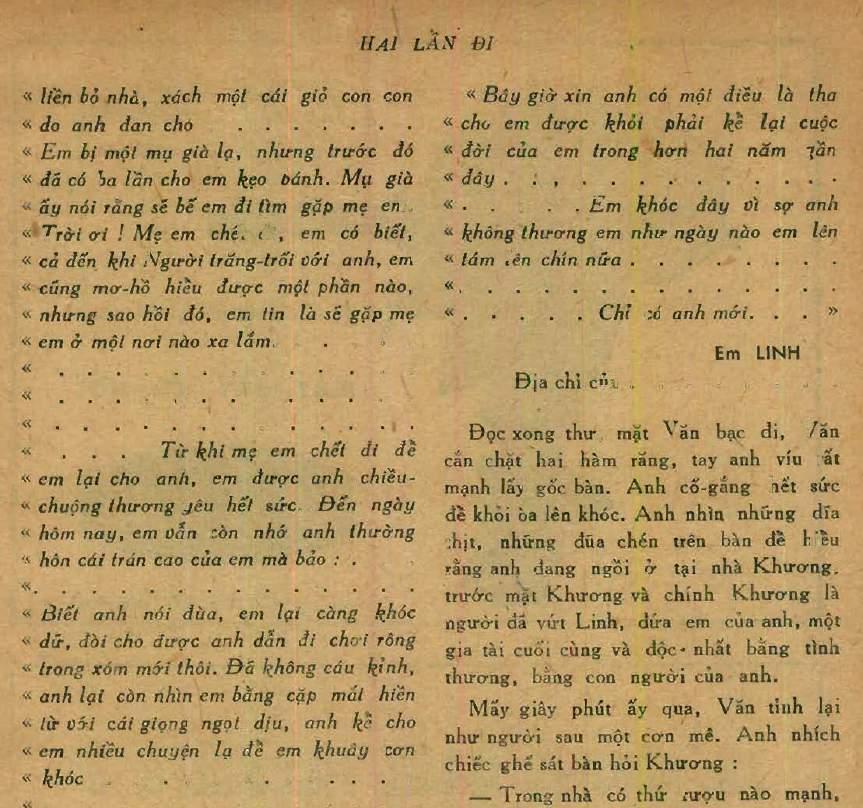 HAI LẦN ĐI
« liền bỏ nhà, xách một cái giỏ con con
« do anh đan cho . . . . . . .
« Em bị một mụ già lạ, nhưng trước đó
« đã có ba lần cho em kẹo bánh. Mụ già
« ấy nói rằng sẽ bế em đi tìm gặp mẹ em.
« Trời ơi ! Mẹ em , em có biết,
« cả đến khi Người trăng-trối với anh, em
« cũng mơ-hồ hiểu được một phần nào,
« nhưng sao hồi đó, em tin là sẽ gặp mẹ
« em ở một nơi nào xa lắm.
« . . . . . . . . . . . .
« . . . . . . . . . . . .
« . . . . . . . . . . . .
« . . . . Từ khi mẹ em chết đi để
« em lại cho anh, em được anh chiều-
« chuộng thương yêu hết sức. Đến ngày
« hôm nay, em vẫn còn nhớ anh thường
« hôn cái trán cao của em mà bảo : .
« . . . . . . . . . . . . .
« Biết anh nói đùa, em lại càng khóc
« dữ, đòi cho được anh dẫn đi chơi rông
« trong xóm mới thôi. Đã không cáu kỉnh,
« anh lại còn nhìn em bằng cặp mắt hiền
« từ với cái giọng ngọt dịu, anh kể cho
« em nhiều chuyện lạ để em khuây cơn
« khóc . . . . . .
«
« Bây giờ xin anh có một điều là tha
« cho em được khỏi phải kể lại cuộc
« đời của em trong hơn hai năm gần
« đây . . , . . . . . . . . .
« . . . . . Em khóc đây vì sợ anh
« không thương em như ngày nào em lên
« tám lên chín nữa . . . . . . . .
« . . . . . . . . . . . . .
« . . . . . Chỉ có anh mới. . . »
Em LINH
Địa chỉ của . . . . . . .
Đọc xong thư mặt Văn bạc đi, Văn
cắn chặt hai hàm răng, tay anh víu rất
mạnh lấy gốc bàn. Anh cố-gắng hết sức
để khỏi òa lên khóc. Anh nhìn những đĩa
thịt, những đũa chén trên bàn để hiểu
rằng anh đang ngồi ở tại nhà Khương.
trước mặt Khương và chính Khương là
người đã vứt Linh, đứa em của anh, một
gia tài cuối cùng và độc-nhất bằng tình
thương, bằng con người của anh.
Mấy giây phút ấy qua, Văn tỉnh lại
như người sau một cơn mê. Anh nhích
chiếc ghế sát bàn hỏi Khương :
— Trong nhà có thứ rượu nào mạnh,